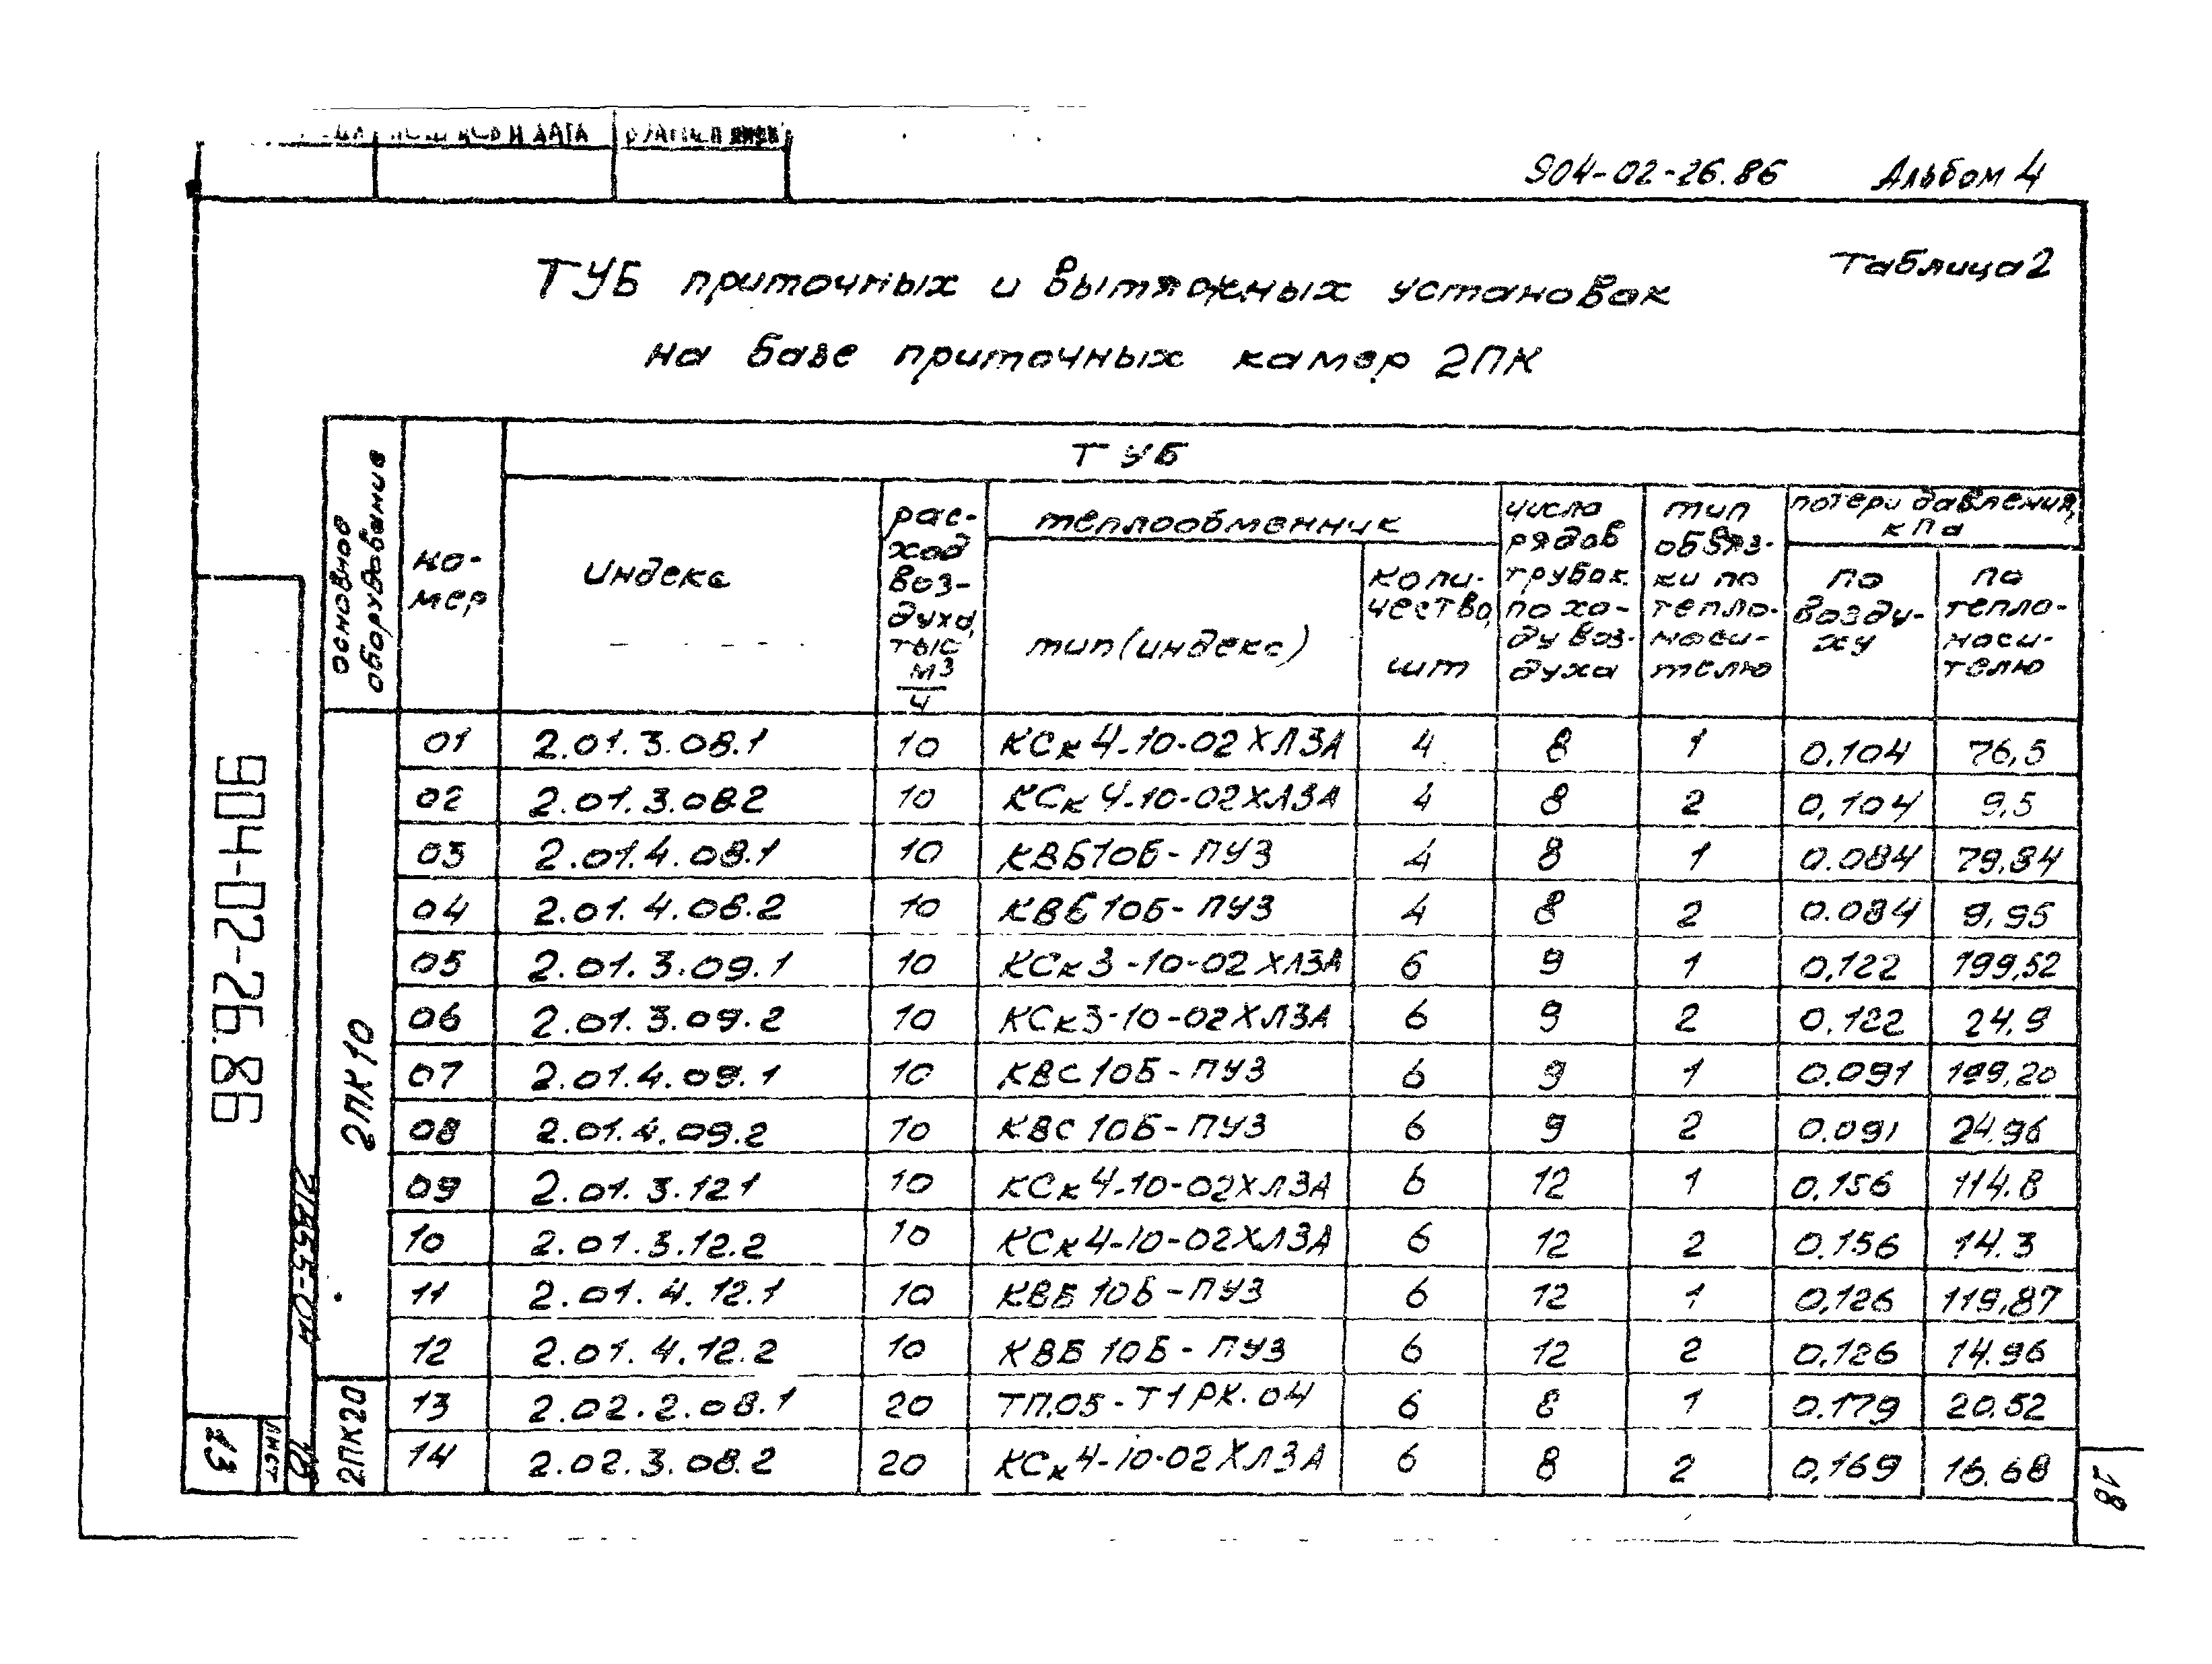 И ДАТА
904-02-26.86 Альбом 4
Таблица 2
ТУБ приточных и вытяжных установок
на базе приточных камер 2ПК
основное оборудование
но-
мер
ТУБ
индекс
рас-
ход
воз-
духа,
тыс
м³
ч
теплообменник
тип (индекс)
коли-
чество,
шт
число
рядов
трубок
по хо-
ду воз-
духа
тип
обвяз-
ки по
тепло-
носи-
телю
потери давления,
кПа
по
возду-
ху
по
тепло-
носи-
телю
2ПК10
01 2.01.3.08.1 10 КСк4-10-02ХЛ3А 4 8 1 0,104 76,5
02 2.01.3.08.2 10 КСк4-10-02ХЛ3А 4 8 2 0,104 9,5
03 2.01.4.08.1 10 КВБ10Б-ПУ3 4 8 1 0.084 79,84
04 2.01.4.08.2 10 КВБ10Б-ПУ3 4 8 2 0.084 9,95
05 2.01.3.09.1 10 КСк3-10-02ХЛ3А 6 9 1 0,122 199,52
06 2.01.3.09.2 10 КСк3-10-02ХЛ3А 6 9 2 0.122 24.9
07 2.01.4.09.1 10 КВС10Б-ПУ3 6 9 1 0.091 199,20
08 2.01.4.09.2 10 КВС10Б-ПУ3 6 9 2 0.091 24.96
09 2.01.3.12.1 10 КСк4-10-02ХЛ3А 6 12 1 0.156 114.8
10 2.01.3.12.2 10 КСк4-10-02ХЛ3А 6 12 2 0.156 14.3
11 2.01.4.12.1 10 КВБ10Б-ПУ3 6 12 1 0,126 119,87
12 2.01.4.12.2 10 КВБ10Б-ПУ3 6 12 2 0,126 14.96
2ПК20
13 2.02.2.08.1 20 ТП.05-Т1РК.04 6 8 1 0.179 20.52
14 2.02.3.08.2 20 КСк4-10-02ХЛ3А 6 8 2 0,169 16.68
904-02-26.86
21865-04
Лист
13
18
18